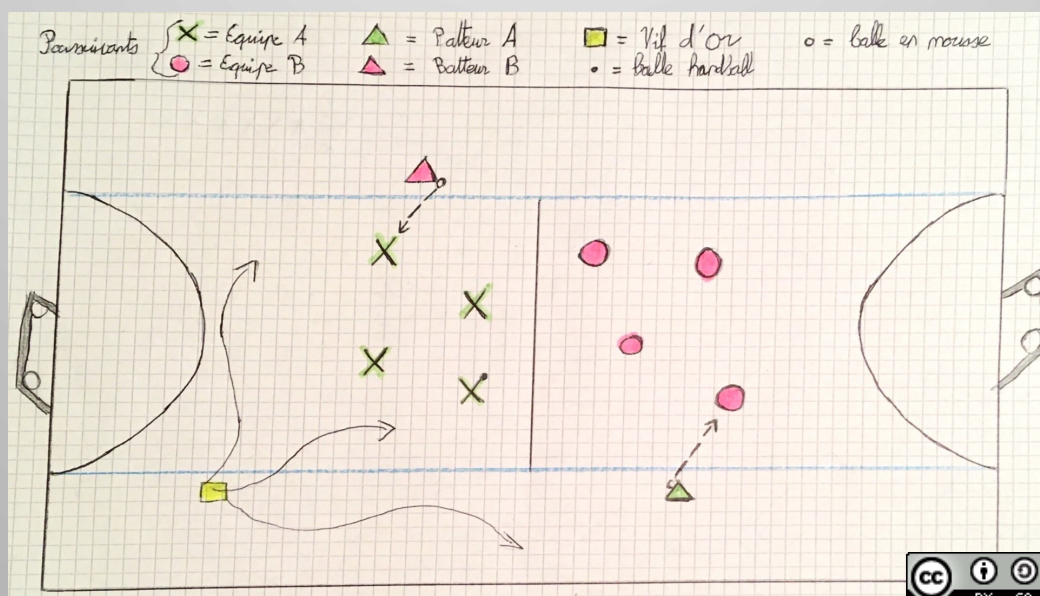 Poursuivants
X = Equipe A
= Equipe B
= Batteur A
= Batteur B
= Vif d'or
= balle handball
= balle en mousse
cc